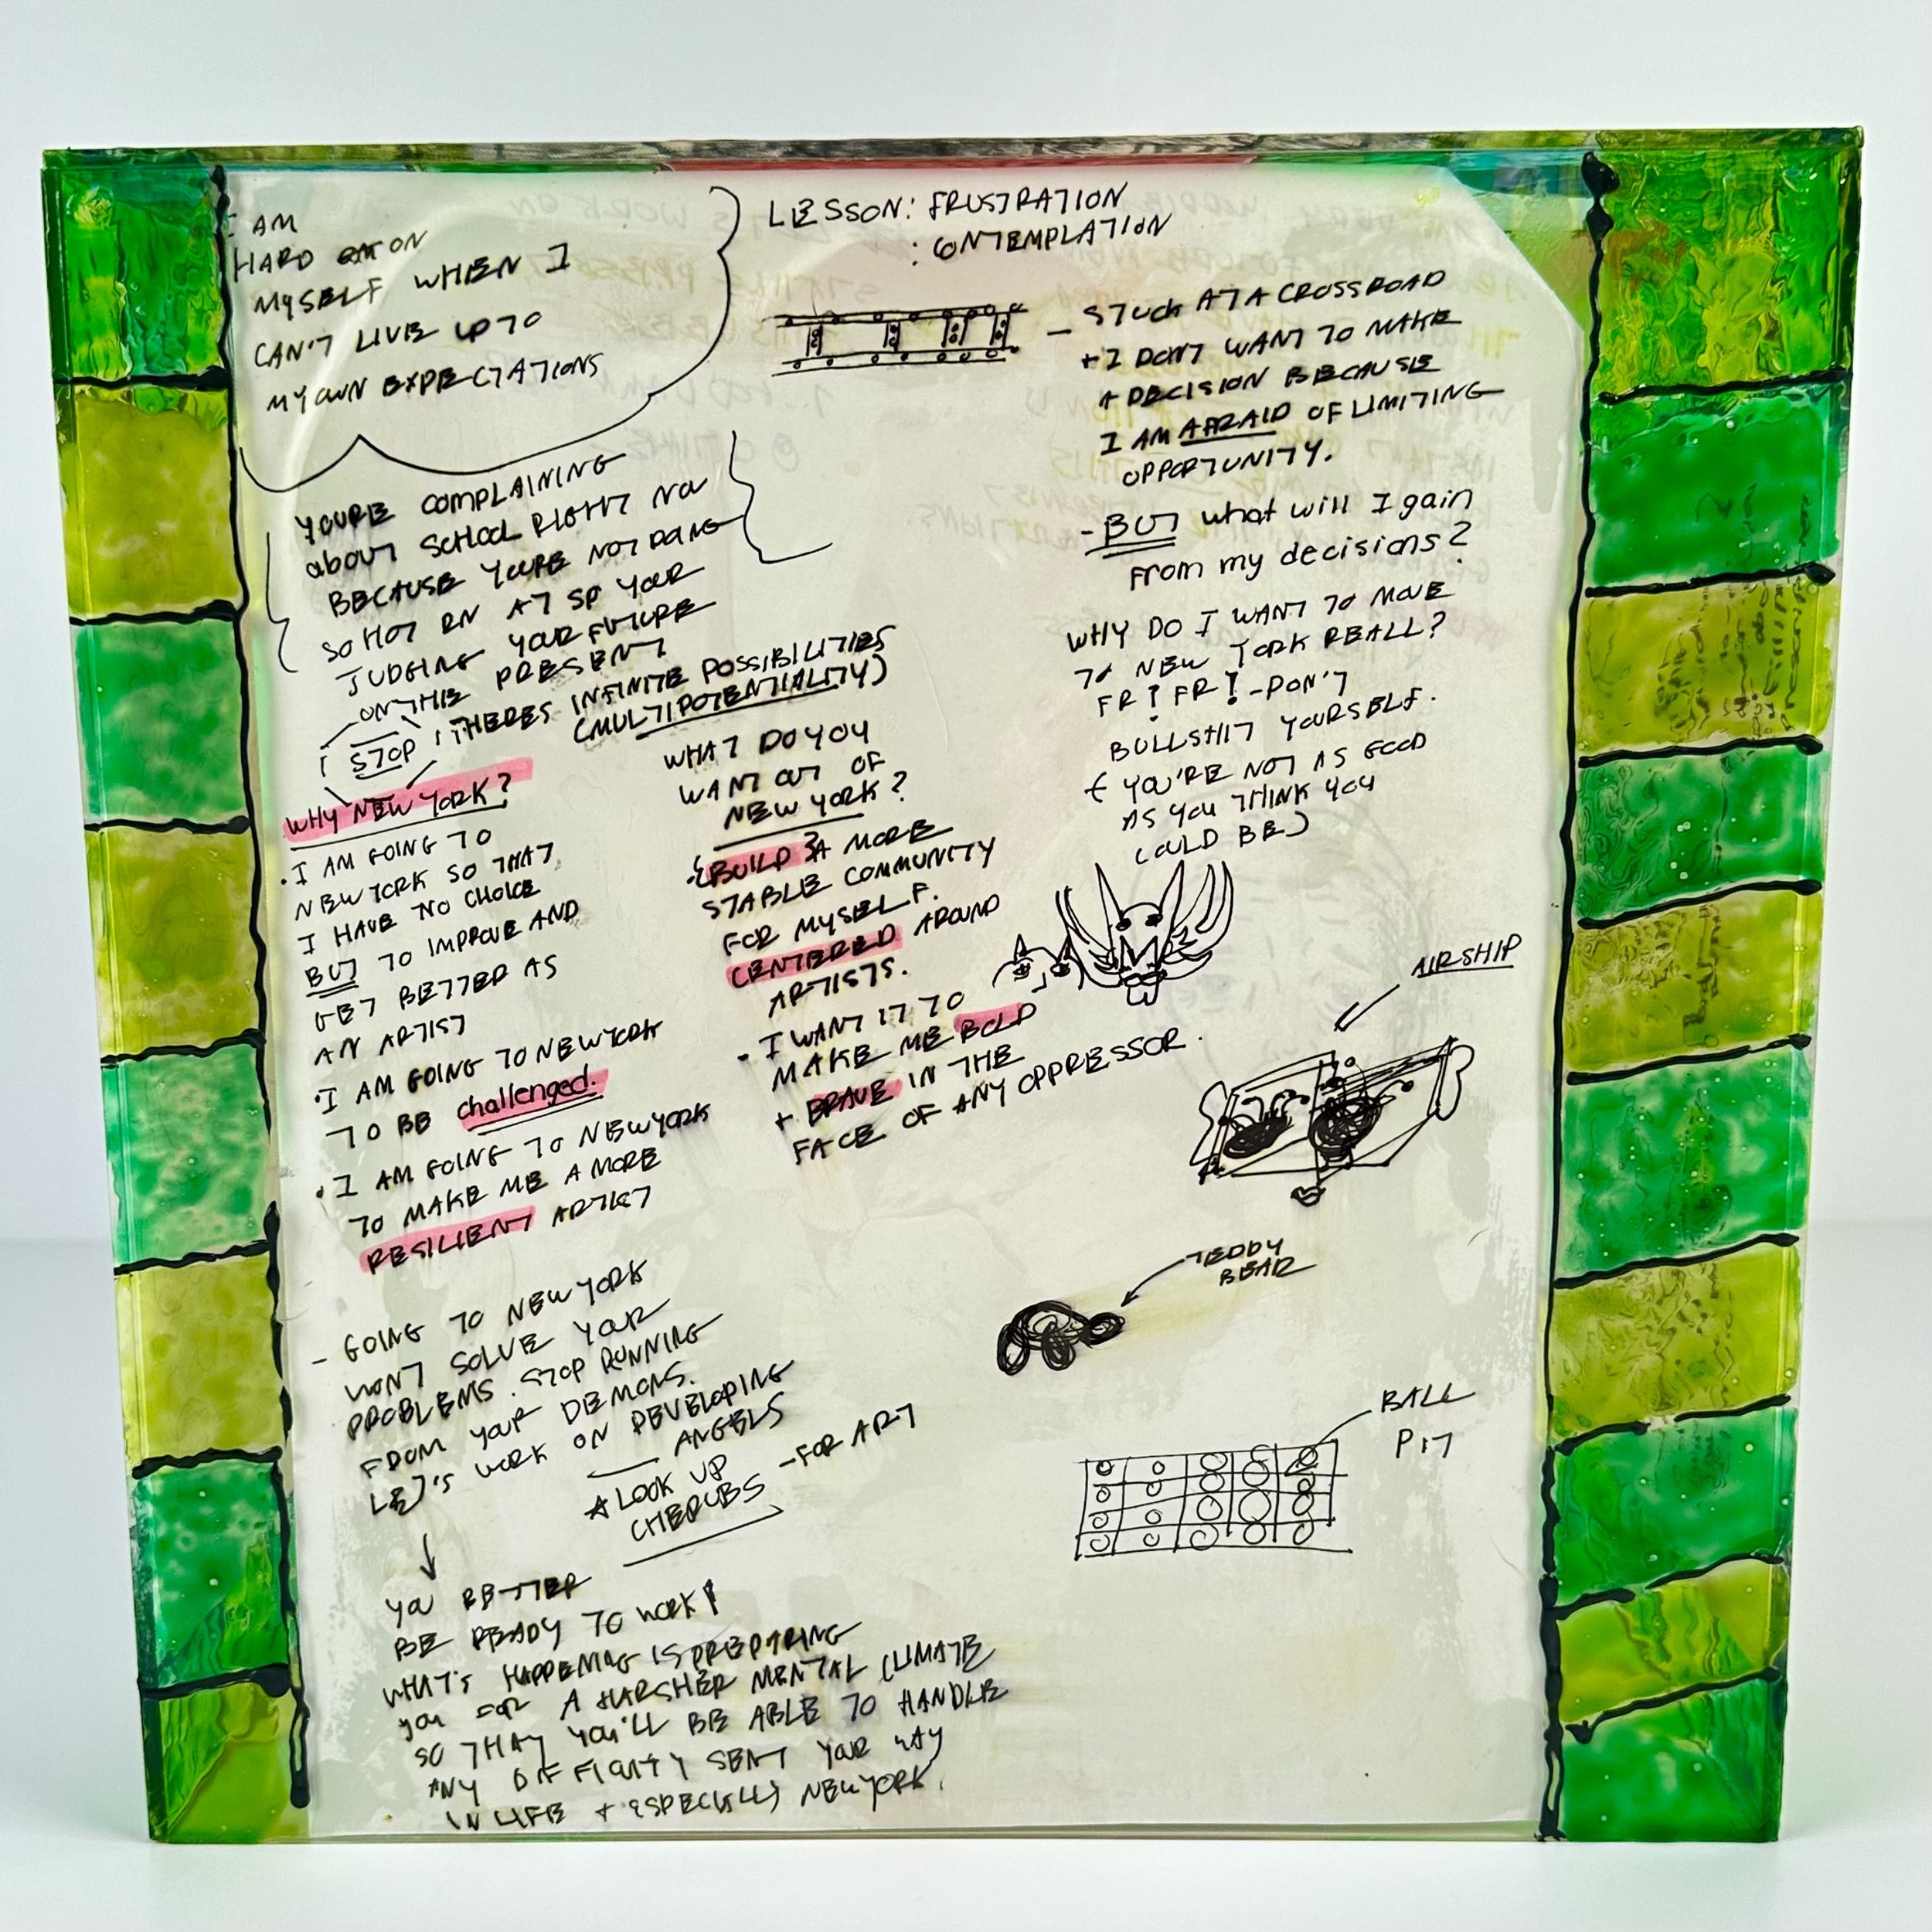 I AM
HARD ON
MYSELF WHEN I
CAN'T LIVE UP TO
MY OWN EXPECTATIONS
YOURE COMPLAINING
about SCHOOL RIGHT NOW
BECAUSE YOURE NOT DOING
SO HOT RN AT SP YOUR
JUDGING YOUR FUTURE
ON THE PRESENT
STOP! THERES INFINITE POSSIBILITIES
(MULTIPOTENTIALITY)
WHY NEW YORK?
· I AM GOING TO
NEW YORK SO THAT
I HAVE NO CHOICE
BUT TO IMPROVE AND
GET BETTER AS
AN ARTIST
· I AM GOING TO NEW YORK
TO BE challenged.
· I AM GOING TO NEW YORK
TO MAKE ME A MORE
RESILIENT ARTIST
- GOING TO NEW YORK
WONT SOLVE YOUR
PROBLEMS. STOP RUNNING
FROM YOUR DEMONS.
LET'S WORK ON DEVELOPING
ANGELS
LOOK UP
CHERUBS - FOR ART
YOU BETTER
BE READY TO WORK!
WHAT'S HAPPENING IS PREPARING
you FOR A HARSHER MENTAL CLIMATE
SO THAT YOU'LL BE ABLE TO HANDLE
ANY DIFFICULTY SENT YOUR WAY
IN LIFE + ESPECIALLY NEW YORK.
WHAT DO YOU
WANT OUT OF
NEW YORK?
· {BUILD} A MORE
STABLE COMMUNITY
FOR MYSELF.
CENTERED AROUND
ARTISTS.
· I WANT IT TO
MAKE ME BOLD
+ BRAVE IN THE
FACE OF ANY OPPRESSOR.
LESSON: FRUSTRATION
: CONTEMPLATION
- STUCK AT A CROSSROAD
+ I DON'T WANT TO MAKE
A DECISION BECAUSE
I AM AFRAID OF LIMITING
OPPORTUNITY.
- BUT what will I gain
from my decisions?
WHY DO I WANT TO MOVE
TO NEW YORK REALL?
FR? FR? - DON'T
BULLSHIT YOURSELF.
(YOU'RE NOT AS GOOD
AS YOU THINK YOU
COULD BE)
AIRSHIP
TEDDY
BEAR
BALL
PIT